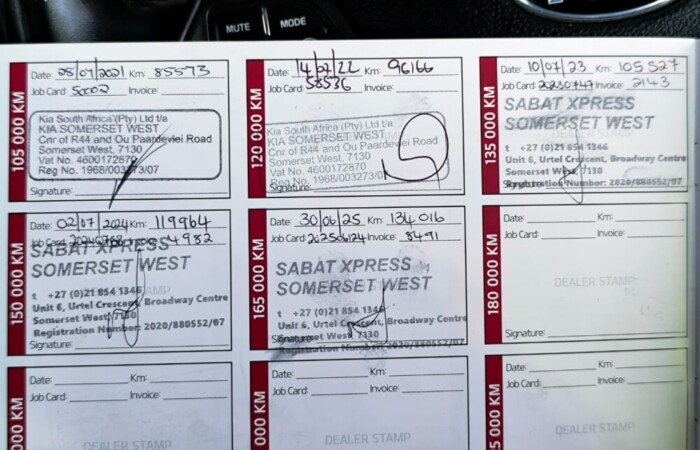 MUTE MODE
105 000 KM
Date: 05/07/2021 Km: 85573
Job Card: 50002 Invoice:
Kia South Africa (Pty) Ltd t/a
KIA SOMERSET WEST
Cnr of R44 and Ou Paardevlei Road
Somerset West, 7130
Vat No. 4600172870
Reg No. 1968/003273/07
Signature:
120 000 KM
Date: 14/07/22 Km: 96166
Job Card: 58536 Invoice:
Kia South Africa (Pty) Ltd t/a
KIA SOMERSET WEST
Cnr of R44 and Ou Paardevlei Road
Somerset West, 7130
Vat No. 4600172870
Reg No. 1968/003273/07
Signature:
135 000 KM
Date: 10/07/23 Km: 105 527
Job Card: 20230747 Invoice: 2143
SABAT XPRESS
DEALER STAMP
SOMERSET WEST
t +27 (0)21 854 1346
Unit 6, Urtel Crescent, Broadway Centre
Somerset West 7130
Signature:
Registration Number: 2020/880552/07
150 000 KM
Date: 02/07/2024 Km: 119964
Job Card: Invoice: 4982
SABAT XPRESS
SOMERSET WEST
t +27 (0)21 854 1346
Unit 6, Urtel Crescent, Broadway Centre
Somerset West, 7130
Registration Number: 2020/880552/07
Signature:
165 000 KM
Date: 30/06/25 Km: 134 016
Job Card: 202506124 Invoice: 8491
SABAT XPRESS
SOMERSET WEST
t +27 (0)21 854 1346
Unit 6, Urtel Crescent, Broadway Centre
Somerset West 7130
Signature:
Registration Number: 2020/880552/07
180 000 KM
Date: Km:
Job Card: Invoice:
DEALER STAMP
Signature:
000 KM
Date: Km:
Job Card: Invoice:
DEALER STAMP
000 KM
Date: Km:
Job Card: Invoice:
DEALER STAMP
5 000 KM
Date: Km:
Job Card: Invoice:
DEALER STAMP